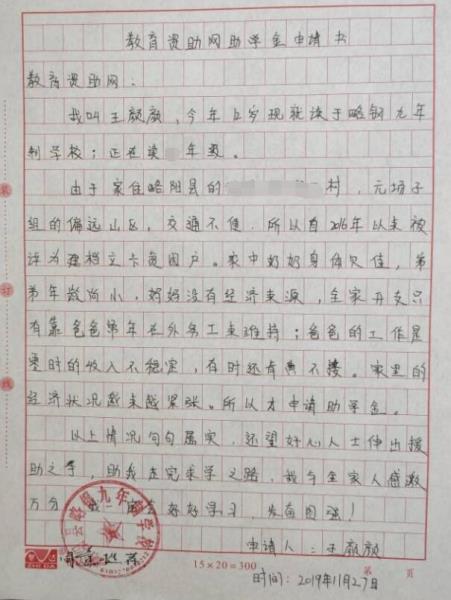 教育资助网助学金申请书
教育资助网：
我叫王颜颜，今年12岁现就读于略钢九年
制学校；正在读年级。
由于家住略阳县的村，元坝子
组的偏远山区，交通不便，所以自2016年以来被
评为建档立卡贫困户。家中奶奶身体欠佳，弟
弟年龄尚小，妈妈没有经济来源，全家开支只
有靠爸爸常年在外务工来维持；爸爸的工作是
零时的收入不稳定，有时还青黄不接。家里的
经济状况越来越紧张。所以才申请助学金。
以上情况句句属实，还望好心人士伸出援
助之手，助我走完求学之路，我与全家人感激
万分，我一定好好学习，发奋图强！
申请人：王颜颜
15×20=300
第 页
时间：2019年11月27日
装
订
线
九年制学校